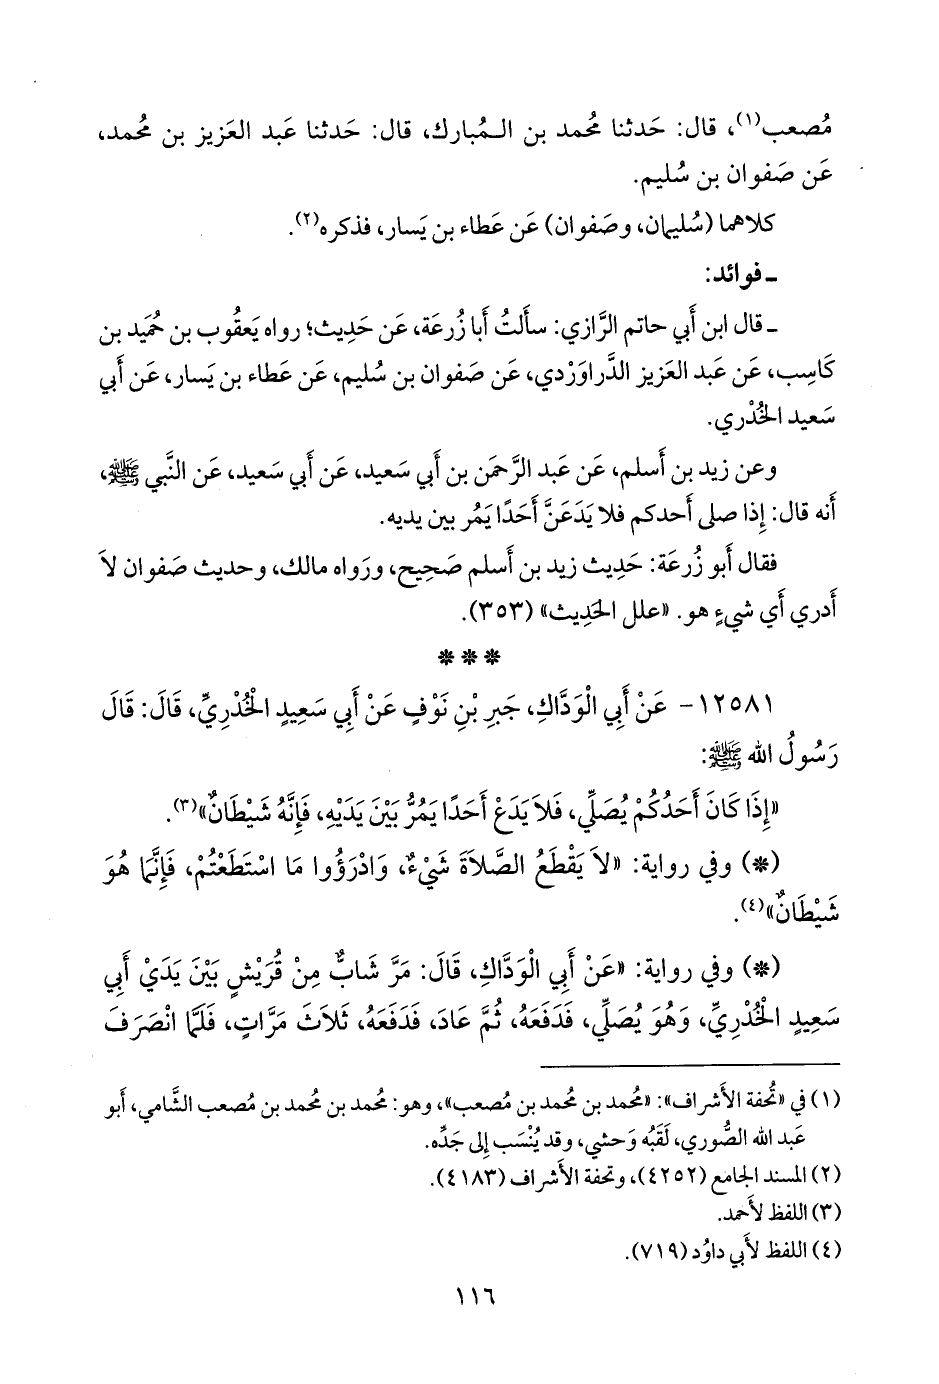 مُصعب(١)، قال: حَدثنا مُحمد بن الـمُبارك، قال: حَدثنا عَبد العَزيز بن مُحمد،
عَن صَفوان بن سُليم.
كلاهما (سُليمان، وصَفوان) عَن عَطاء بن يَسار، فذكره(٢).
ـ فوائد:
ـ قال ابن أَبي حاتم الرَّازي: سأَلتُ أَبا زُرعَة، عَن حَدِيث؛ رواه يَعقُوب بن حُميد بن
كَاسِب، عَن عَبد العَزيز الدَّراوَرْدي، عَن صَفوان بن سُليم، عَن عَطاء بن يَسار، عَن أَبي
سَعيد الخُدْري.
وعن زيد بن أَسلم، عَن عَبد الرَّحمَن بن أَبي سَعيد، عَن أَبي سَعيد، عَن النَّبي ﷺ،
أَنه قال: إِذا صلى أَحدكم فلا يَدَعَنَّ أَحَدًا يَمُر بين يديه.
فقال أَبو زُرعَة: حَدِيث زيد بن أَسلم صَحِيح، ورَواه مالك، وحديث صَفوان لاَ
أَدري أَي شيءٍ هو. «علل الحَدِيث» (٣٥٣).
* * *
١٢٥٨١- عَنْ أَبِي الْوَدَّاكِ، جَبرِ بْنِ نَوْفٍ عَنْ أَبِي سَعِيدٍ الْخُدْرِيِّ، قَالَ: قَالَ
رَسُولُ الله ﷺ:
«إِذَا كَانَ أَحَدُكُمْ يُصَلِّي، فَلاَ يَدَعْ أَحَدًا يَمُرُّ بَيْنَ يَدَيْهِ، فَإِنَّهُ شَيْطَانٌ»(٣).
(*) وفي رواية: «لاَ يَقْطَعُ الصَّلاَةَ شَيْءٌ، وَادْرَؤُوا مَا اسْتَطَعْتُمْ، فَإِنَّمَا هُوَ
شَيْطَانٌ»(٤).
(*) وفي رواية: «عَنْ أَبِي الْوَدَّاكِ، قَالَ: مَرَّ شَابٌّ مِنْ قُرَيْشٍ بَيْنَ يَدَيْ أَبِي
سَعِيدٍ الْخُدْرِيِّ، وَهُوَ يُصَلِّي، فَدَفَعَهُ، ثُمَّ عَادَ، فَدَفَعَهُ، ثَلاَثَ مَرَّاتٍ، فَلَمَّا انْصَرَفَ
(١) في «تُحفة الأَشراف»: «مُحمد بن مُحمد بن مُصعب»، وهو: مُحمد بن مُحمد بن مُصعب الشَّامي، أَبو
عَبد الله الصُّوري، لَقَبُه وَحشي، وقد يُنْسَب إِلى جَدِّه.
(٢) المسند الجامع (٤٢٥٢)، وتحفة الأَشراف (٤١٨٣).
(٣) اللفظ لأَحمد.
(٤) اللفظ لأَبي داوُد (٧١٩).
١١٦